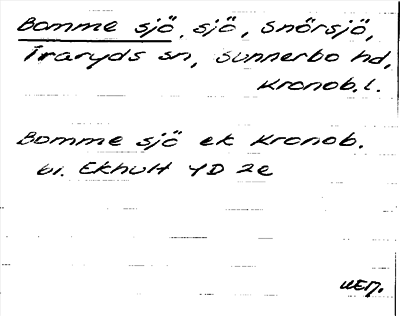 Bomme sjö, sjö, Snörsjö,
Traryds sn, Sunnerbo hd,
Kronob. l.
Bomme sjö ek Kronob.
bl. Ekhult 4D 2e
WEM.